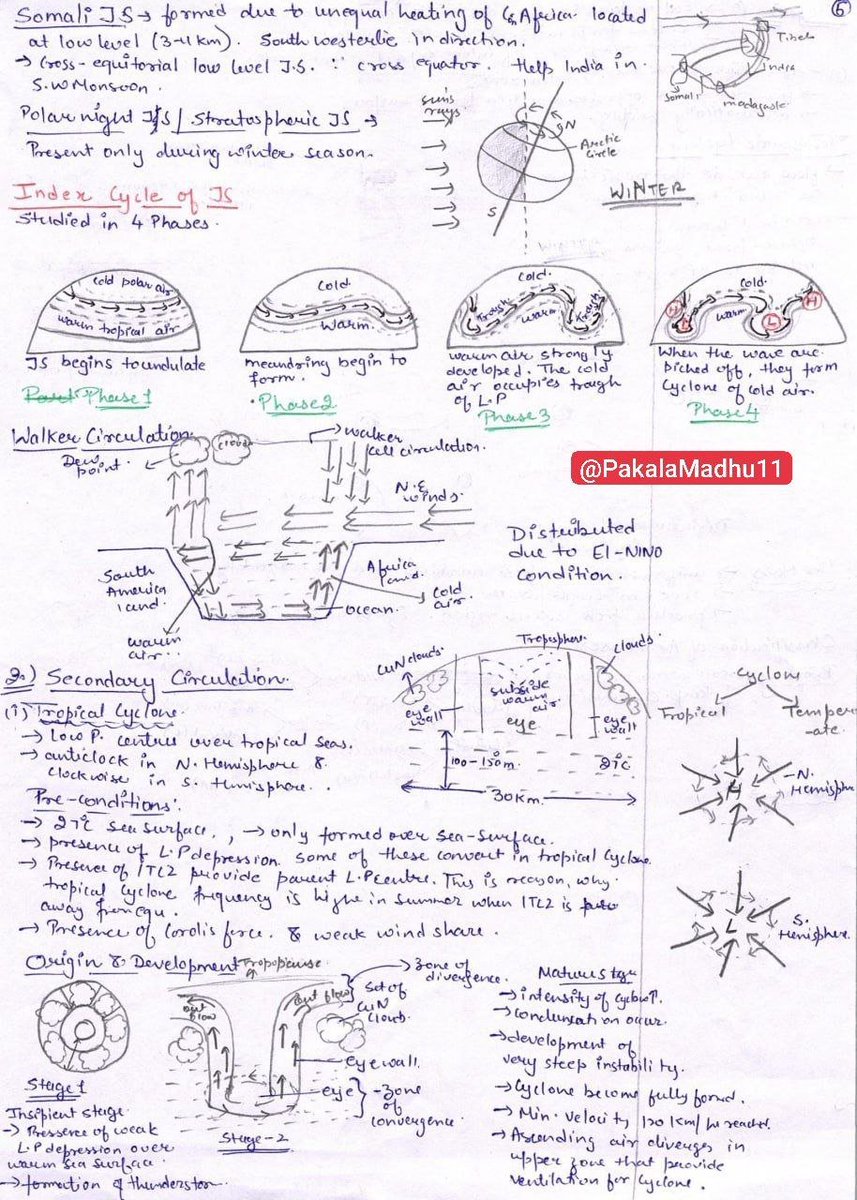 Somali JS → formed due to unequal heating of & Africa located
at low level (3-4 km). South westerlie in direction.
→ Cross-equitorial low level J.S. ∵ cross equator. Help India in
S.W Monsoon.
6
Tibet
India
Somali
madagaske
Polar night J/S / Stratospheric JS →
Present only during winter season.
sun's
rays
N
Arctic
Circle
S
WINTER
Index Cycle of JS
Studied in 4 Phases.
cold polar air
warm tropical air
JS begins to undulate
Phase 1
cold.
Warm.
meandring begin to
form.
Phase 2
cold.
Trough
warm
Trough
warm air strongly
developed. The cold
air occupies trough
of L.P
Phase 3
cold.
H
warm
L
H
When the wave are
Piched off, they form
cyclone of cold air.
Phase 4
Walker Circulation
Dew
point.
cloud
walker
cell circulation.
@PakalaMadhu11
N.E
winds.
Distributed
due to El-NINO
Condition.
South
America
land
Africa
land.
cold
air.
ocean.
warm
air.
2.) Secondary Circulation.
(i) Tropical Cyclone.
→ Low P. centrue over tropical seas.
→ anticlock in N. Hemisphere &
clockwise in S. Hemisphere.
CuN clouds
Troposphere
clouds.
eye
wall
subside
warm
air.
eye
eye
wall
100-150m
27°C
30 Km.
Cyclone
Tropical
Temper-
ate.
H
N.
Hemisphe
Pre-conditions:
→ 27°C sea surface., → only formed over sea-surface.
→ presence of L.P depression. some of these convert in tropical cyclone
→ Presence of ITCZ provide parent L.P centre. This is reason, why
tropical cyclone frequency is highe in summer when ITCZ is
away from equ.
→ Presence of Corolis force. & weak wind share.
L
S.
Hemispher.
Origin & Development
Tropopause
out flow
out flow
Zone of
divergence.
Set of
CuN
Cloud.
eye wall.
eye
Zone
of
convergence.
Stage-2
Stage 1
Insipient stage
→ Pressence of weak
L.P depression over
warm sea surface.
→ formation of thunderstor.
Mature stage
→ intensity of cyclo↑.
→ condensation occur.
→ development of
very steep instability.
→ Cyclone become fully formed.
→ Min. velocity 120 km/hr reached.
→ Ascending air diverges in
upper zone that provide
ventilation for cyclone.